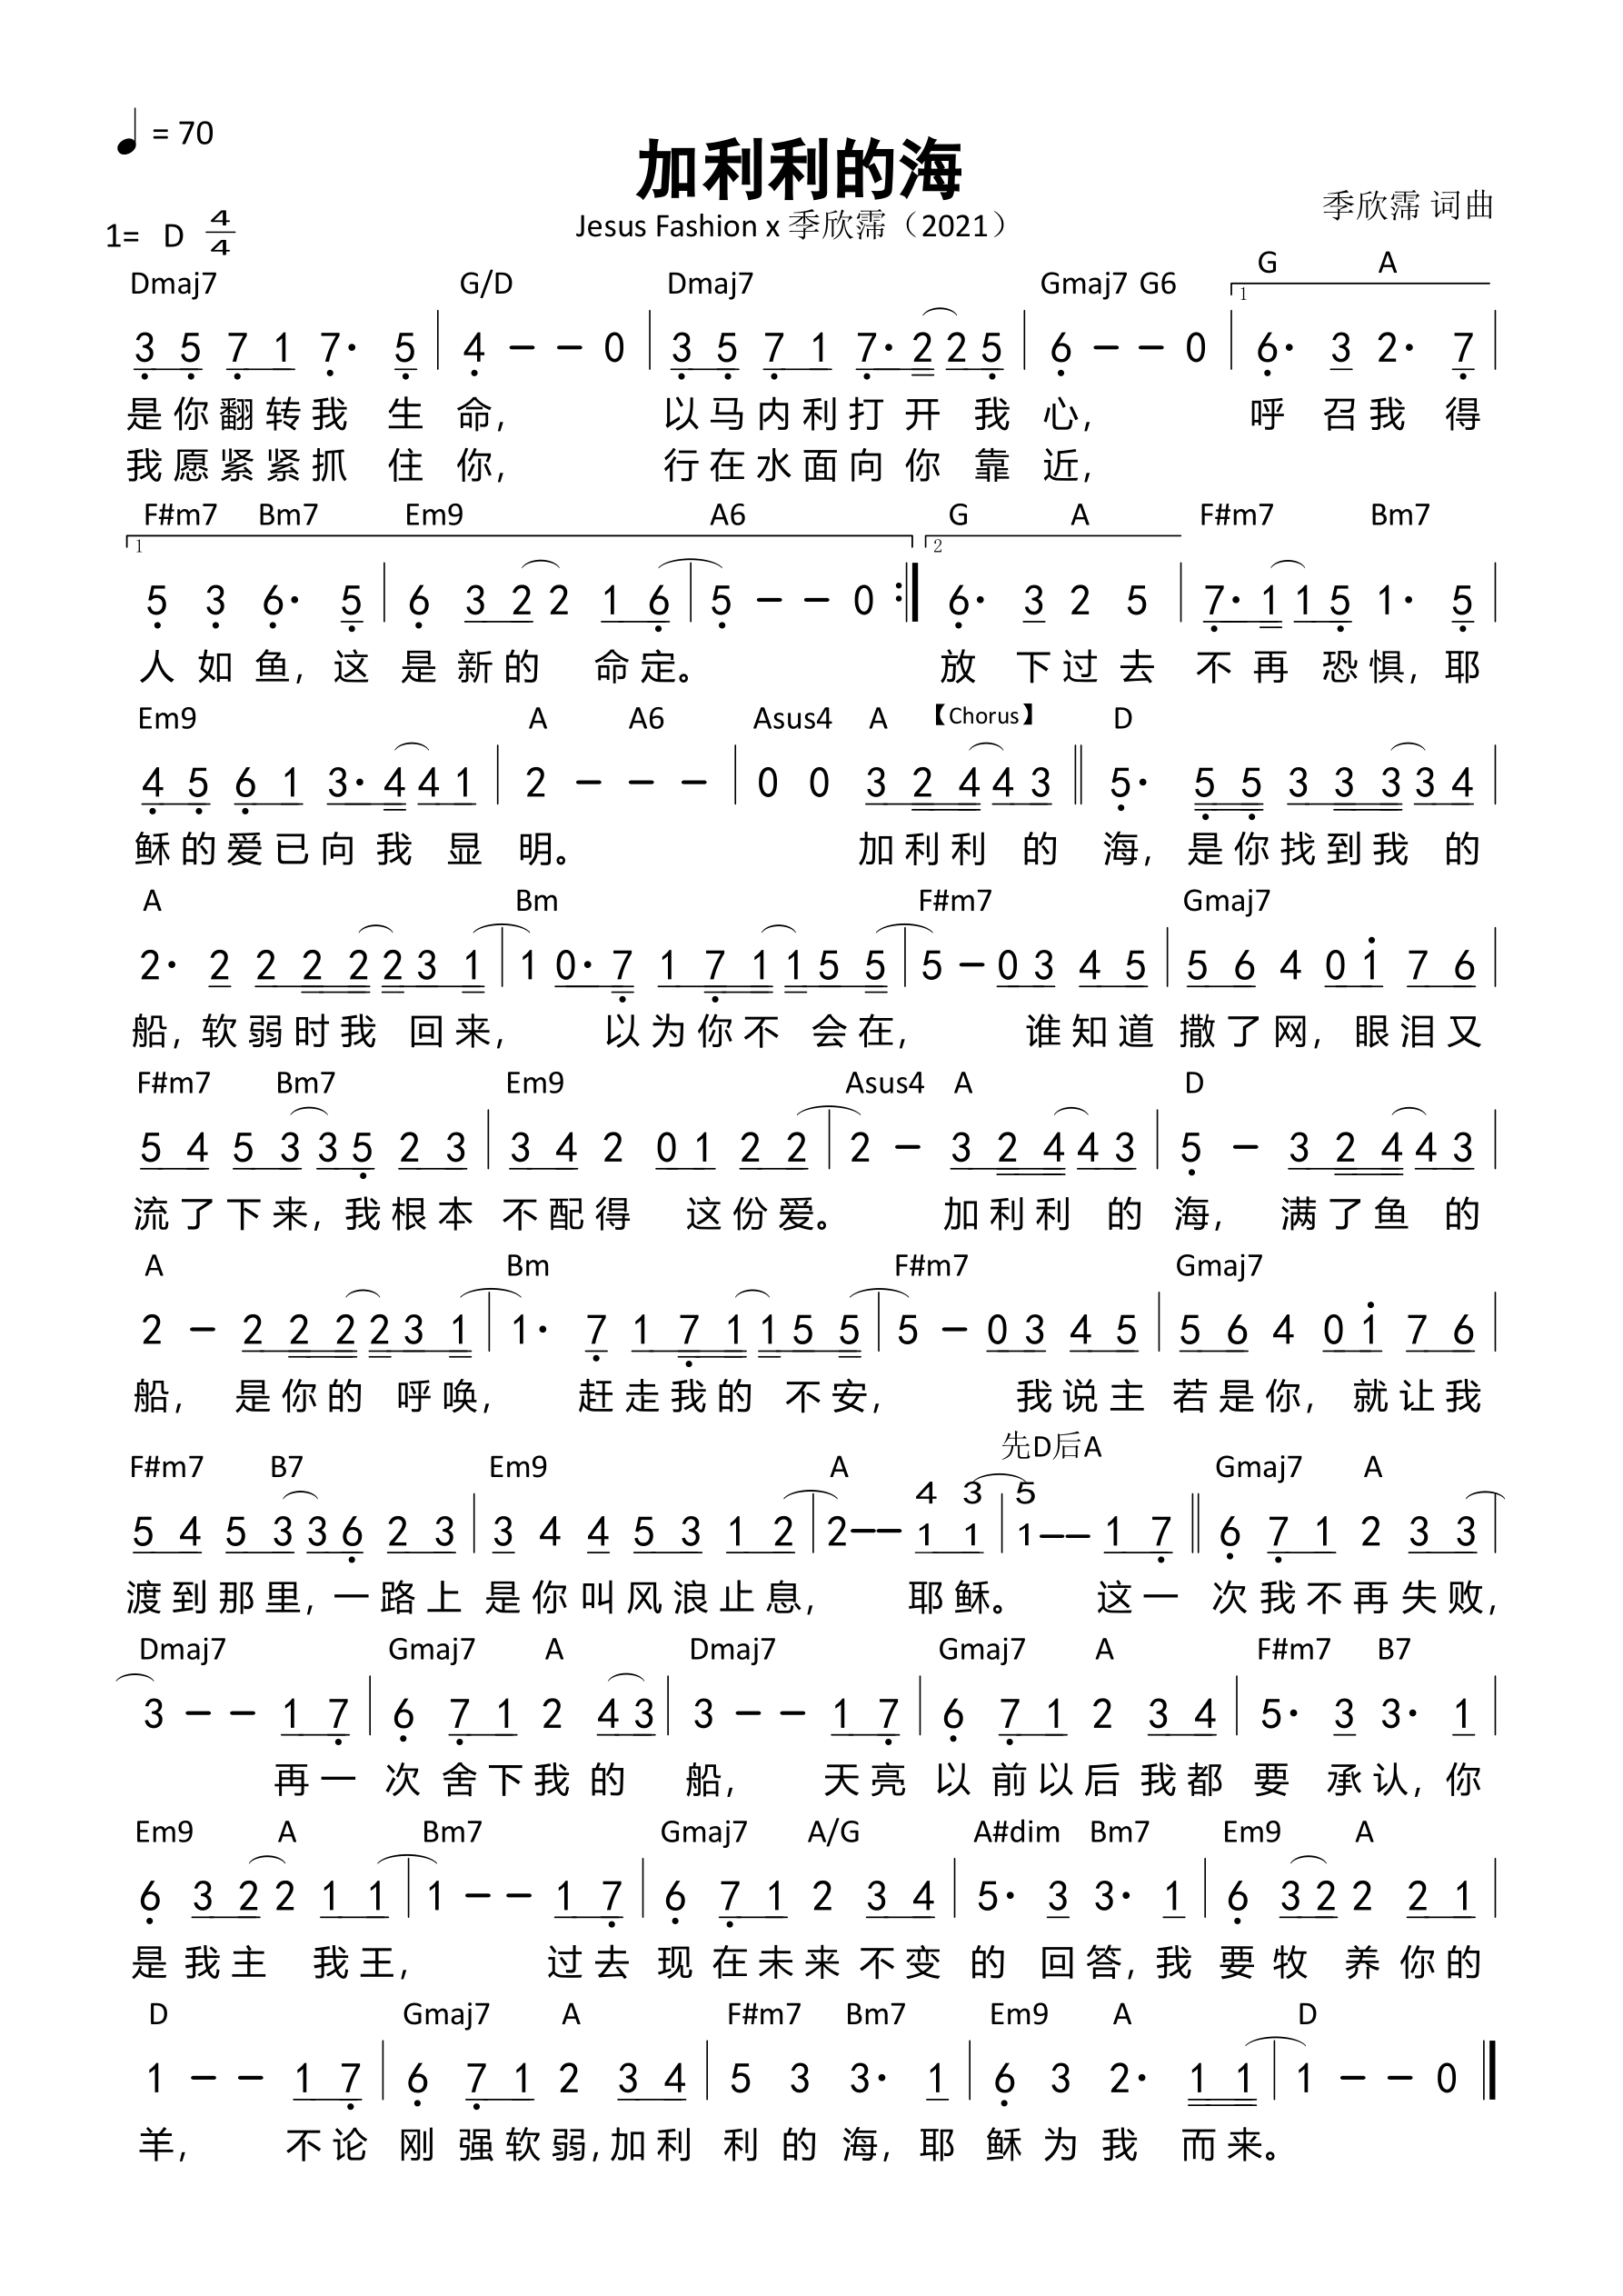 ♩ = 70
加利利的海
季欣霈 词曲
Jesus Fashion x 季欣霈（2021）
1= D 4/4
Dmaj7 G/D Dmaj7 Gmaj7 G6 G A
3 5 7 1 7· 5 | 4 – – 0 | 3 5 7 1 7· 2 2 5 | 6 – – 0 | 1 6· 3 2· 7 |
是你翻转我 生 命， 以马内利打 开 我 心， 呼 召我 得
我愿紧紧抓 住 你， 行在水面向 你 靠 近，
F#m7 Bm7 Em9 A6 G A F#m7 Bm7
1 5 3 6· 5 | 6 3 2 2 1 6 | 5 – – 0 :| 2 6· 3 2 5 | 7· 1 1 5 1· 5 |
人 如 鱼，这 是 新的 命定。 放 下过 去 不 再 恐惧，耶
Em9 A A6 Asus4 A 【Chorus】 D
4 5 6 1 3· 4 4 1 | 2 – – – | 0 0 3 2 4 4 3 || 5· 5 5 3 3 3 3 4 |
稣的爱已向 我 显 明。 加利利 的 海，是你找到我 的
A Bm F#m7 Gmaj7
2· 2 2 2 2 2 3 1 | 1 0· 7 1 7 1 1 5 5 | 5 – 0 3 4 5 | 5 6 4 0 1 7 6 |
船，软弱时我 回来， 以为你不 会在， 谁知道 撒了网，眼泪又
F#m7 Bm7 Em9 Asus4 A D
5 4 5 3 3 5 2 3 | 3 4 2 0 1 2 2 | 2 – 3 2 4 4 3 | 5 – 3 2 4 4 3 |
流了下来，我根本 不配得 这份爱。 加利利 的 海， 满了鱼 的
A Bm F#m7 Gmaj7
2 – 2 2 2 2 3 1 | 1· 7 1 7 1 1 5 5 | 5 – 0 3 4 5 | 5 6 4 0 1 7 6 |
船， 是你的 呼唤， 赶走我的 不安， 我说主 若是你，就让我
先D后A
F#m7 B7 Em9 A Gmaj7 A
4 3 5
5 4 5 3 3 6 2 3 | 3 4 4 5 3 1 2 | 2–– 1 1 | 1–– 1 7 || 6 7 1 2 3 3 |
渡到那里，一路上 是你叫风浪止息， 耶稣。 这一 次我不再失败，
Dmaj7 Gmaj7 A Dmaj7 Gmaj7 A F#m7 B7
3 – – 1 7 | 6 7 1 2 4 3 | 3 – – 1 7 | 6 7 1 2 3 4 | 5· 3 3· 1 |
再一 次 舍下我 的 船， 天亮 以 前以后 我都 要 承认，你
Em9 A Bm7 Gmaj7 A/G A#dim Bm7 Em9 A
6 3 2 2 1 1 | 1 – – 1 7 | 6 7 1 2 3 4 | 5· 3 3· 1 | 6 3 2 2 2 1 |
是 我主 我王， 过去 现 在未来 不变 的 回答，我 要牧 养 你的
D Gmaj7 A F#m7 Bm7 Em9 A D
1 – – 1 7 | 6 7 1 2 3 4 | 5 3 3· 1 | 6 3 2· 1 1 | 1 – – 0 ||
羊， 不论 刚 强软弱，加利 利 的 海，耶 稣 为 我 而来。